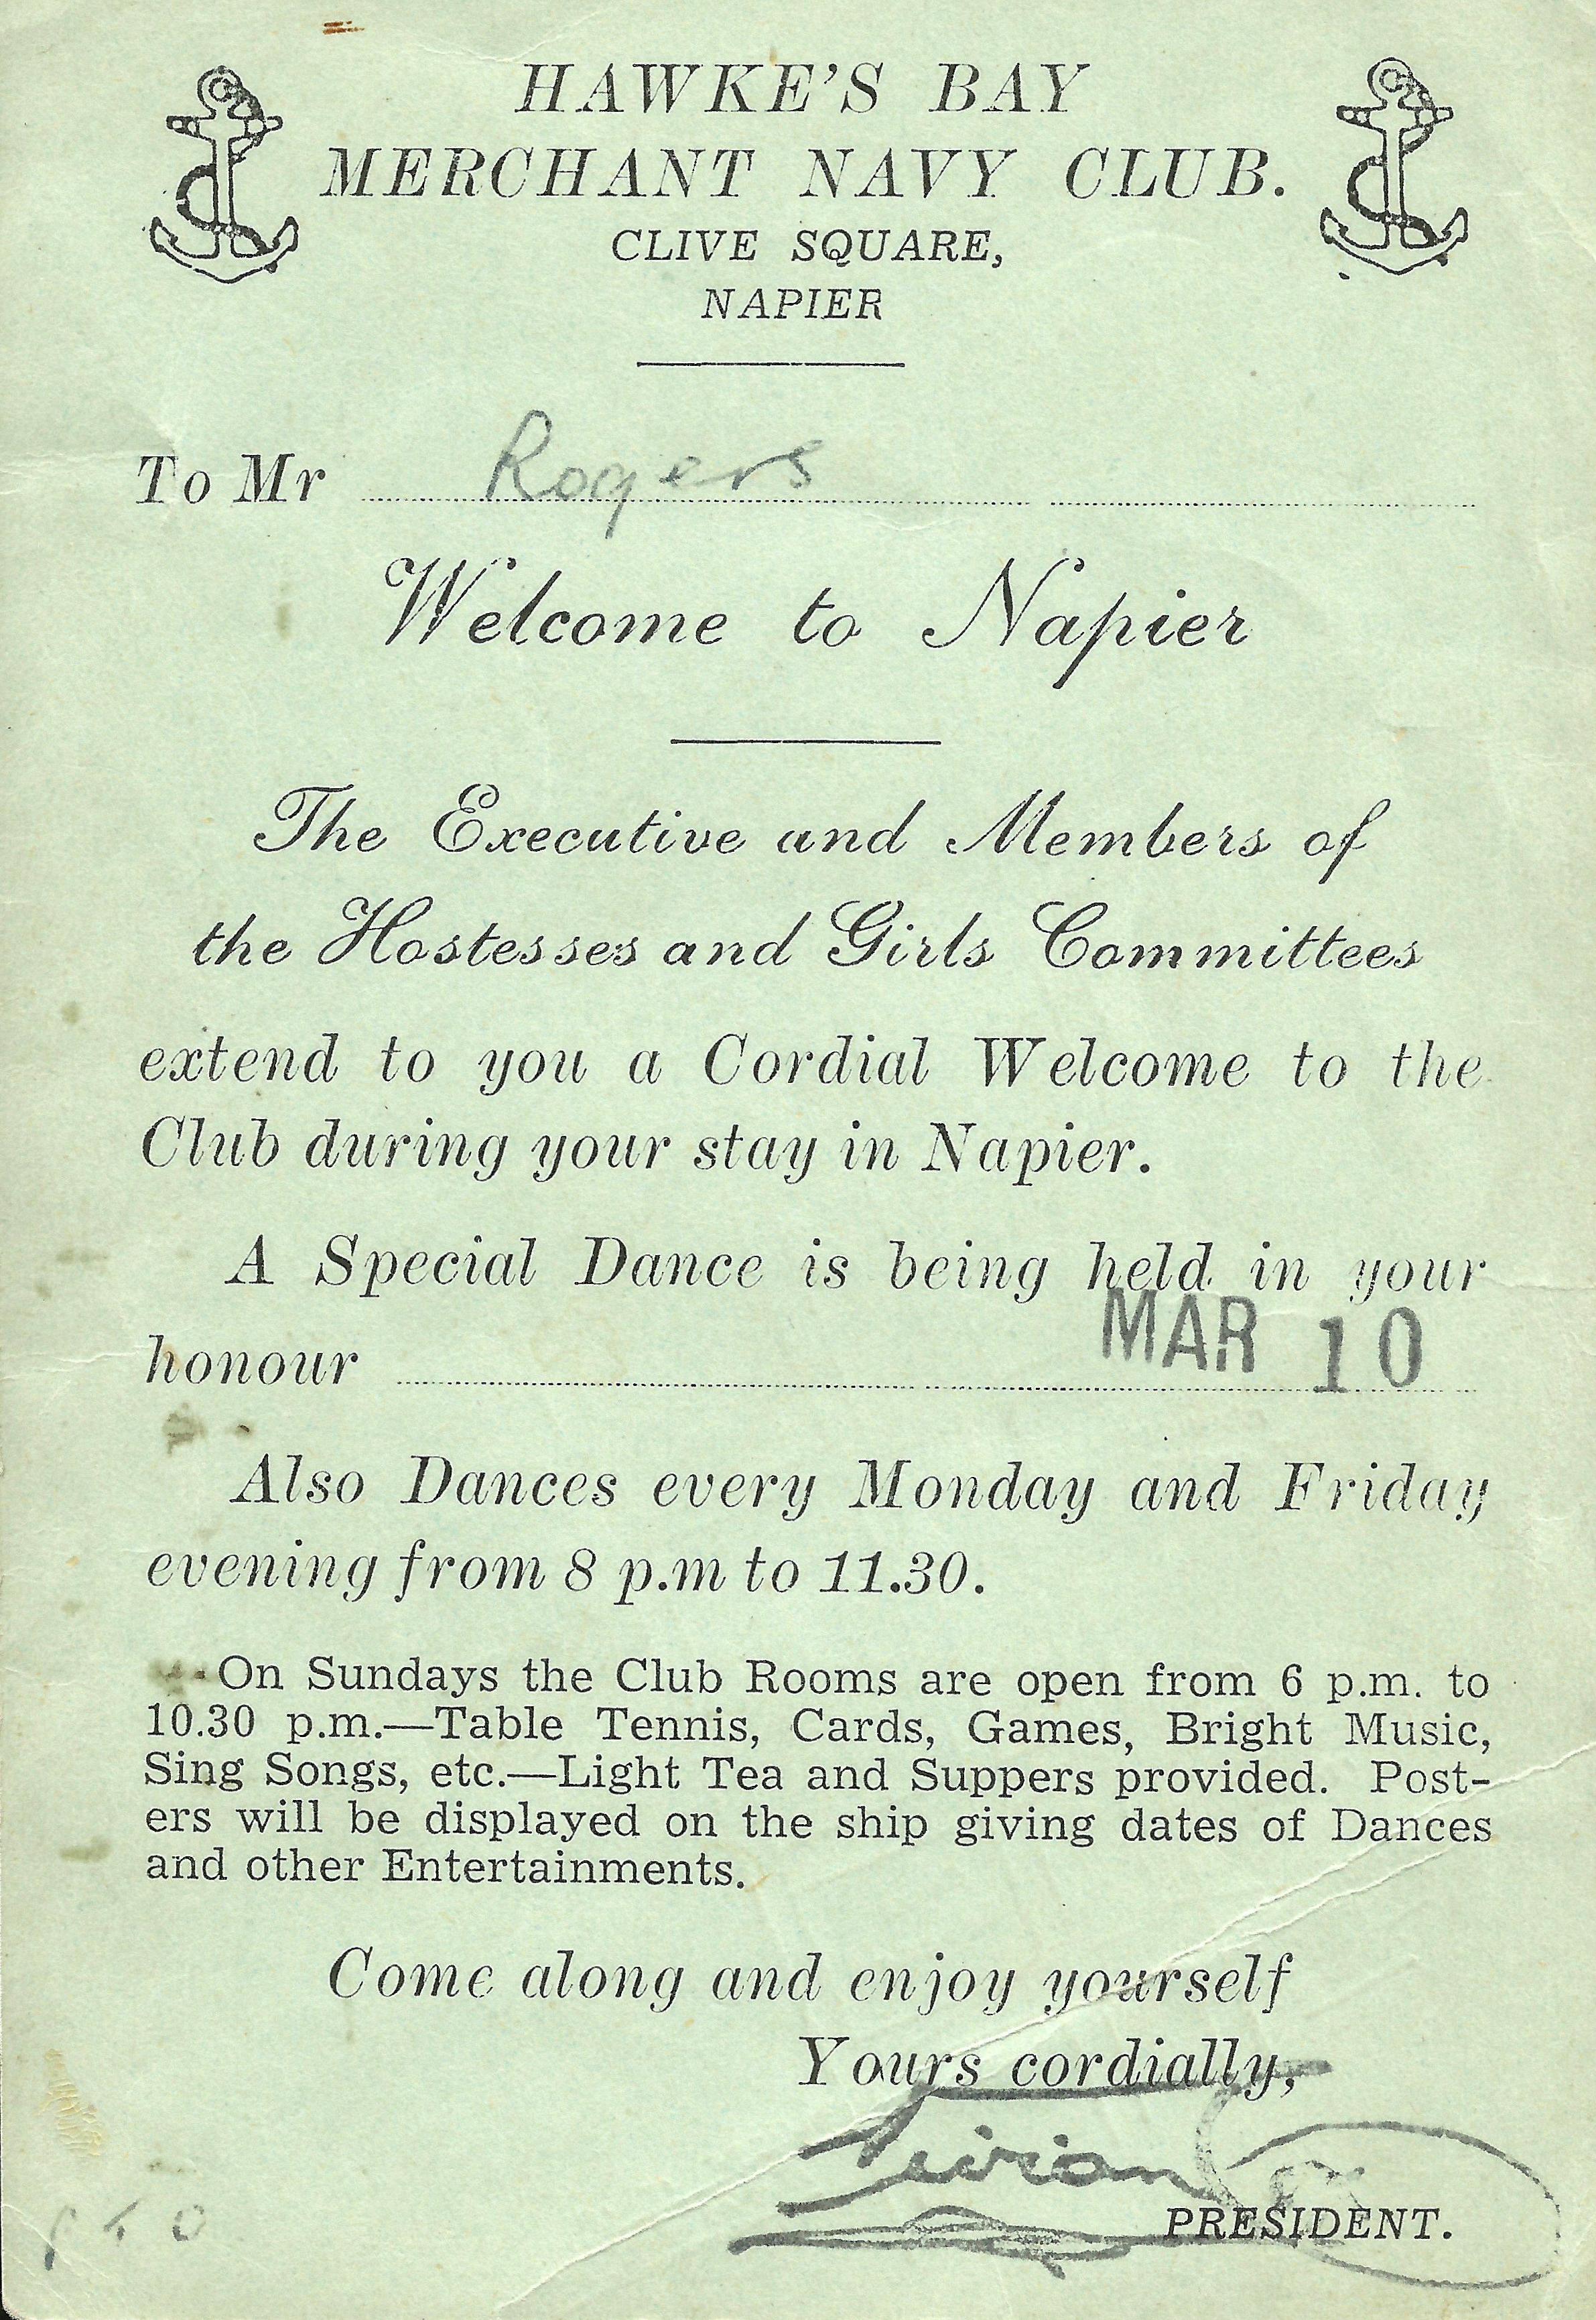 HAWKE'S BAY
MERCHANT NAVY CLUB.
CLIVE SQUARE,
NAPIER
To Mr Rogers
Welcome to Napier
The Executive and Members of
the Hostesses and Girls Committees
extend to you a Cordial Welcome to the
Club during your stay in Napier.
A Special Dance is being held in your
honour MAR 10
Also Dances every Monday and Friday
evening from 8 p.m to 11.30.
On Sundays the Club Rooms are open from 6 p.m. to
10.30 p.m.—Table Tennis, Cards, Games, Bright Music,
Sing Songs, etc.—Light Tea and Suppers provided. Post-
ers will be displayed on the ship giving dates of Dances
and other Entertainments.
Come along and enjoy yourself
Yours cordially,
PRESIDENT.